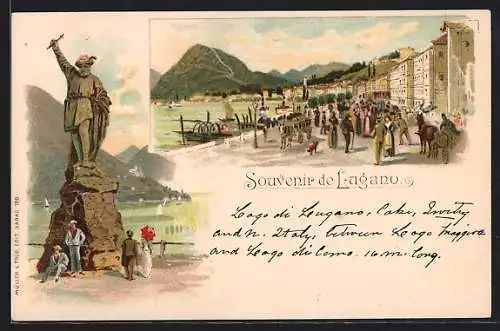 Souvenir de Lugano.
Lago di Lugano, Lake, Switz
and n. Italy, between Lago Maggiore
and Lago di Como. 16 m. long.
MÜLLER & TRÜB EDIT. AARAU